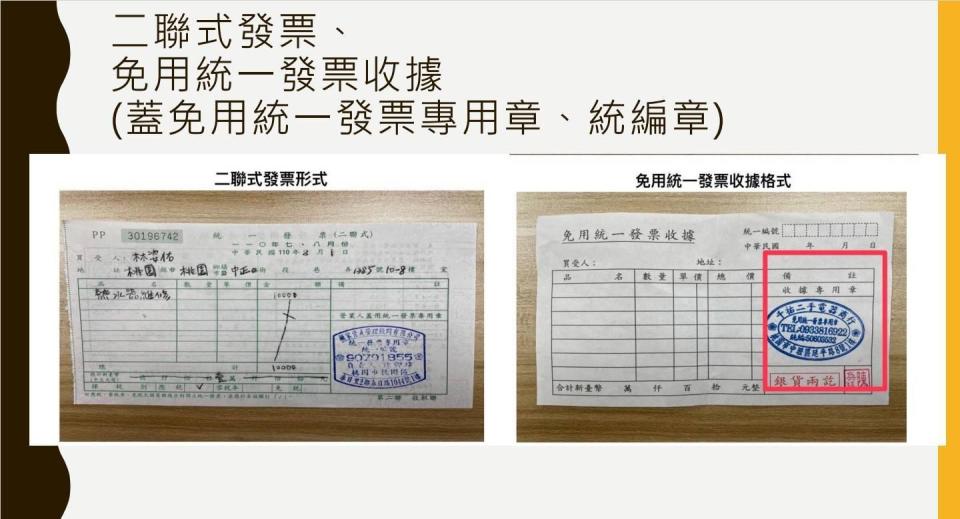 二聯式發票、
免用統一發票收據
(蓋免用統一發票專用章、統編章)
二聯式發票形式
PP 30196742
統一發票(二聯式)
一一〇年七、八月份
中華民國110年8月1日
買受人:
地址:桃園 桃園 中正 街 段 巷 弄1285號10-8樓 室
品名 數量 單價 金額 備註
10000
營業人蓋用統一發票專用章
統一發票專用章
90791855
總計 10000
應稅 ✓ 零稅率 免稅
第二聯 收執聯
免用統一發票收據格式
免用統一發票收據
統一編號
中華民國 年 月 日
買受人: 地址:
品名 數量 單價 總價 備註
收據專用章
千祐二手電器商行
免用統一發票專用章
TEL:0933816922
統編:50603532
合計新臺幣 萬 仟 百 拾 元整
銀貨兩訖